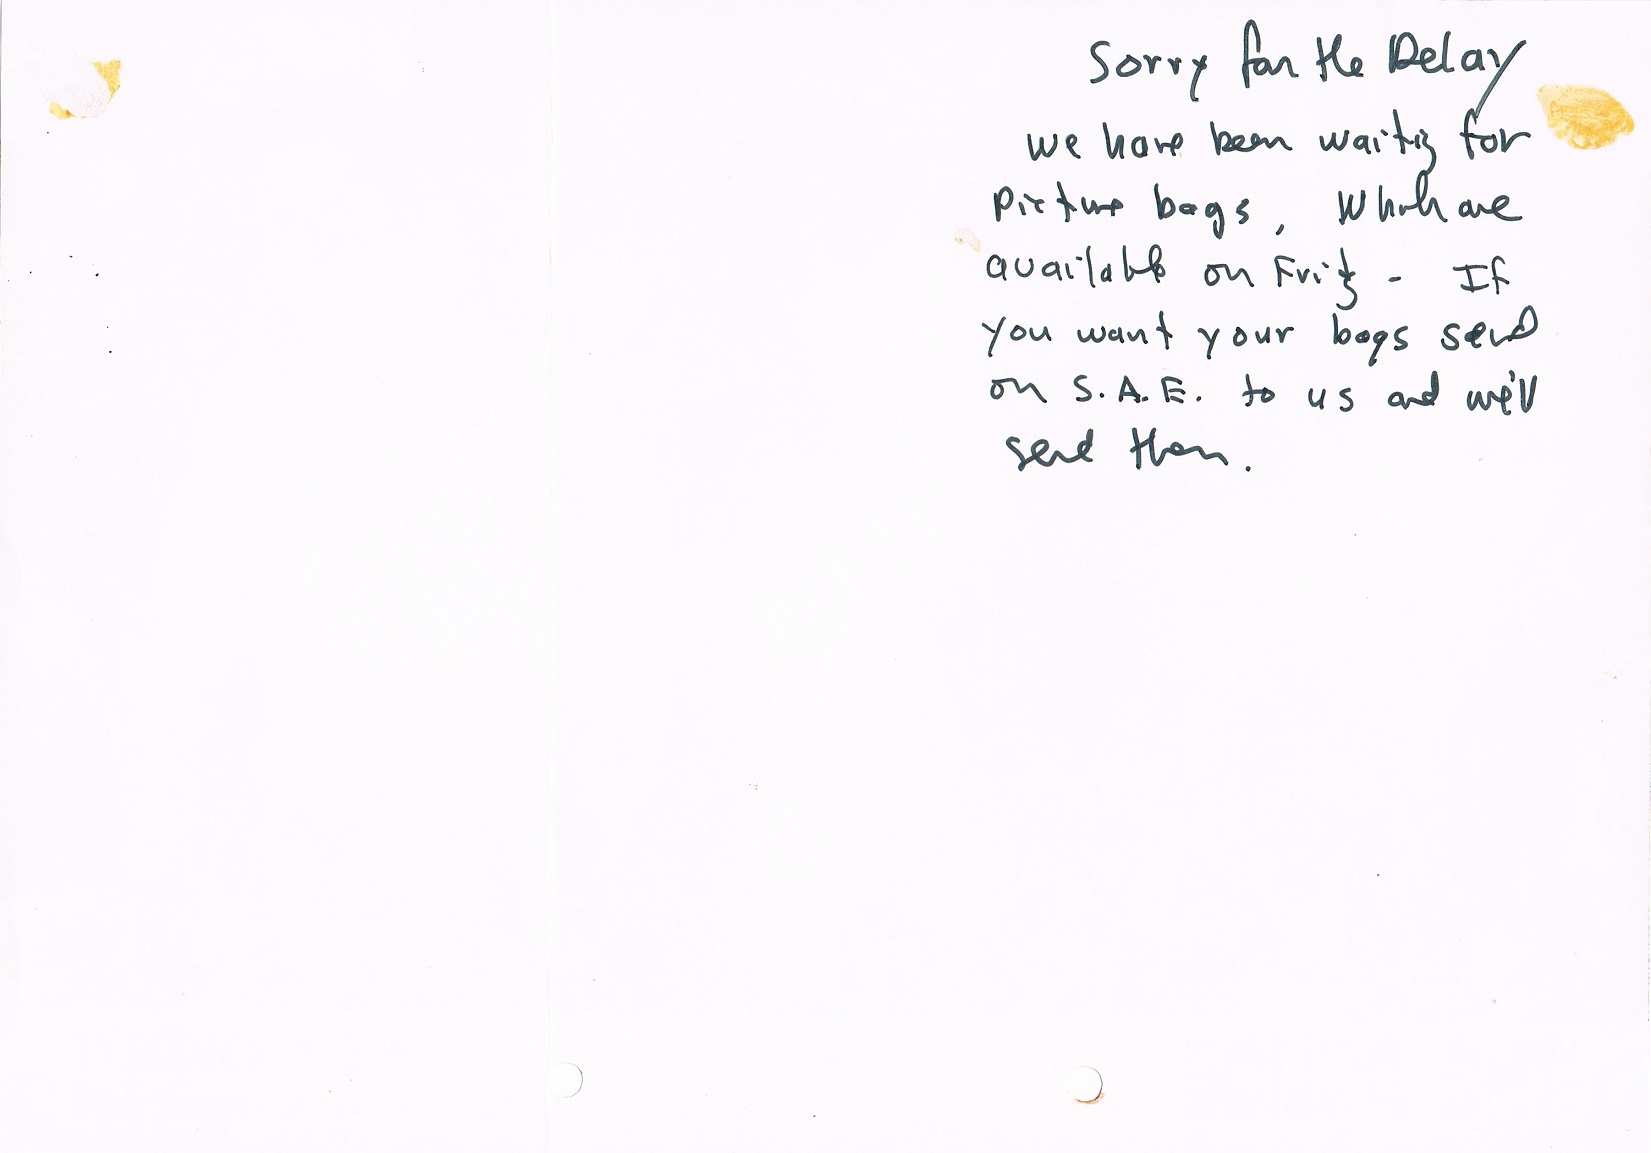 Sorry for the Delay
we have been waiting for
Picture bags, Which are
available on Friday - If
you want your bags send
an S.A.E. to us and we'll
send them.